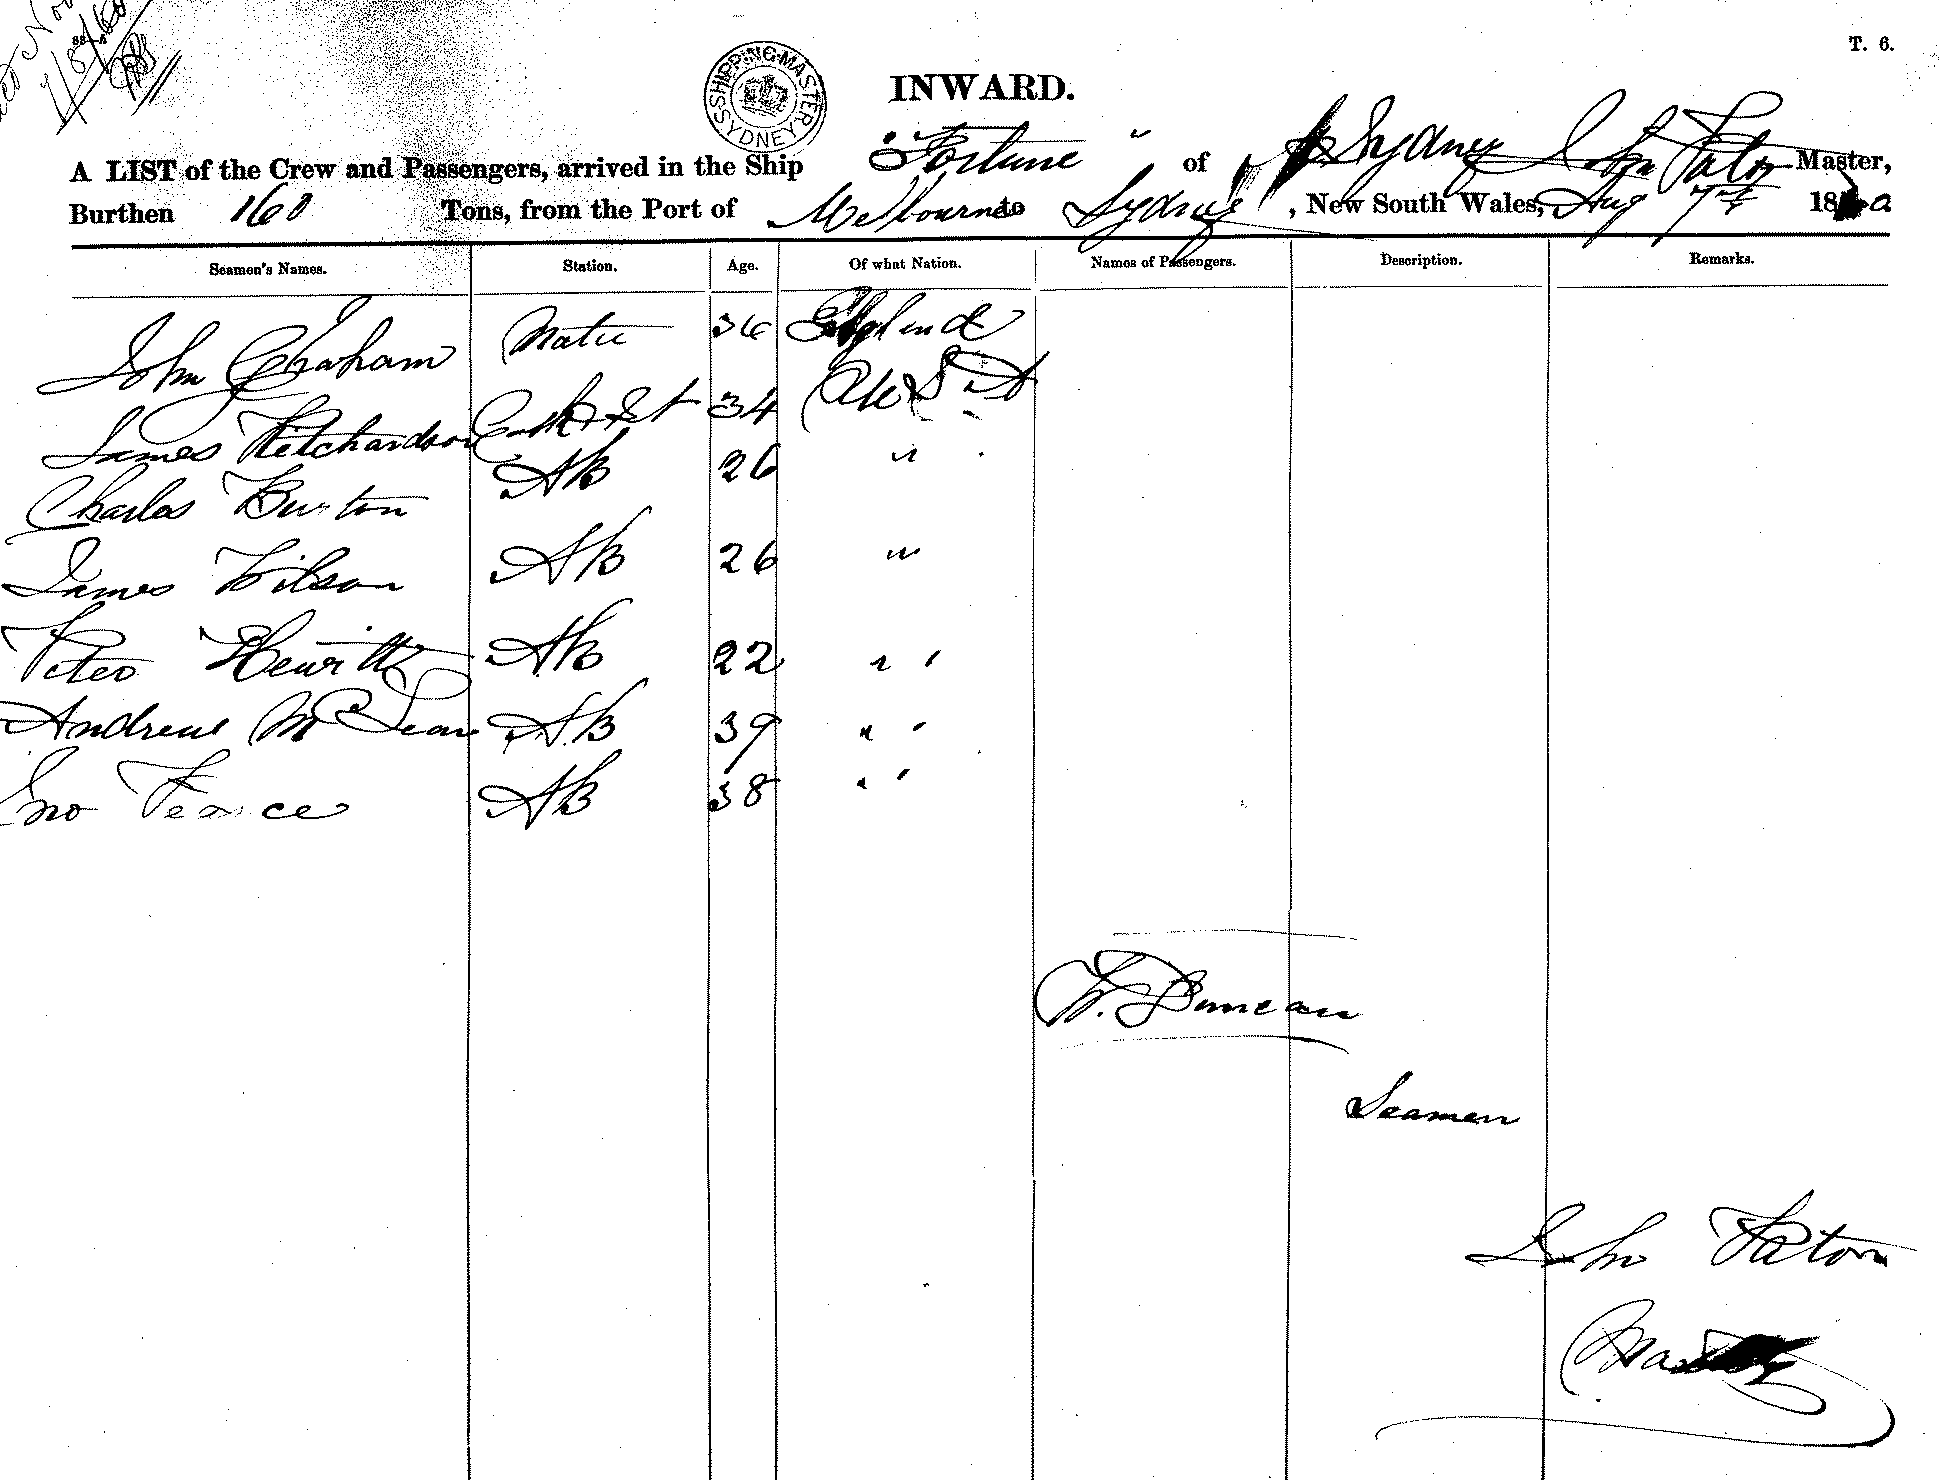 T. 6.
SHIPPING MASTER SYDNEY
INWARD.
A LIST of the Crew and Passengers, arrived in the Ship "Fortune" of Sydney John Paton Master,
Burthen 160 Tons, from the Port of Melbourne to Sydney, New South Wales, Aug 7th 18
Seamen's Names. Station. Age. Of what Nation. Names of Passengers. Description. Remarks.
John Graham Mate 36 England
James Ritchardson Cook & St 34
Charles Burton AB 26 "
James Wilson AB 26 "
Peter Hewitt AB 22 " "
Andrew McLean AB 39 " "
Jno Pearce AB 38 " "
W. Duncan
Seamen
John Paton